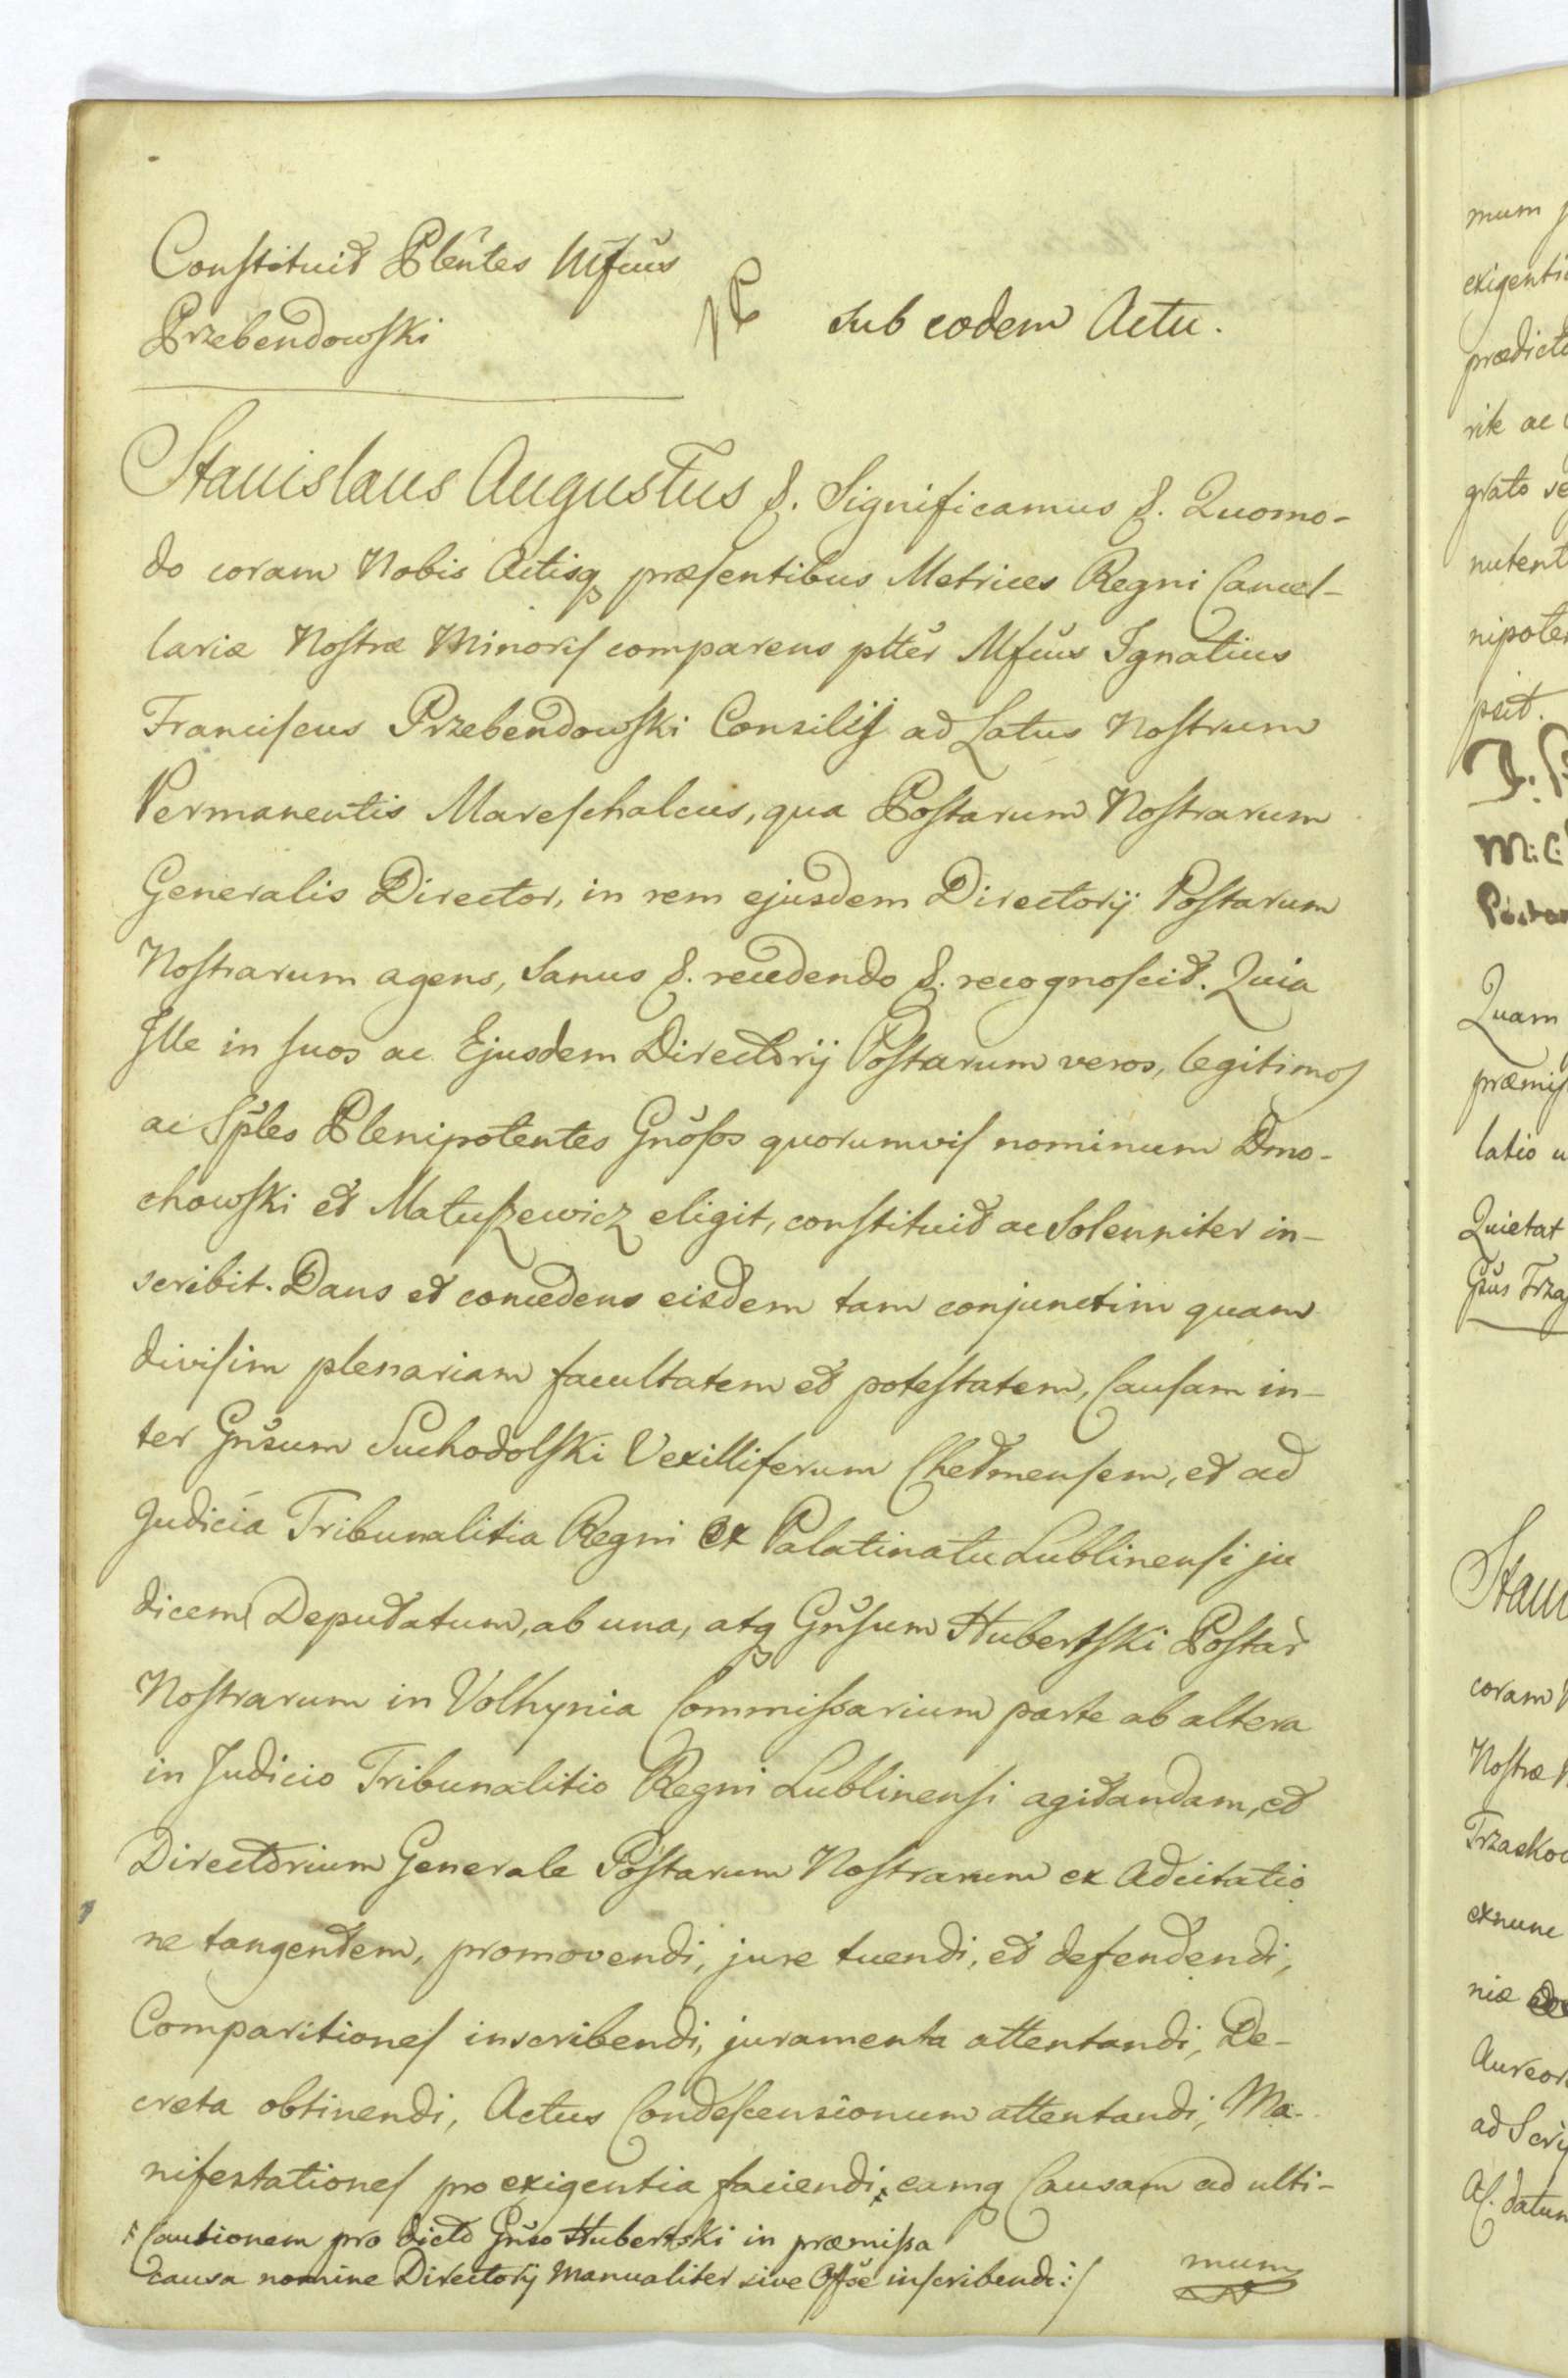 Constituit Plentes Mfcus
Przebendowski
Sub eodem Actu.
Stanislaus Augustus &. Significamus &. Quomo-
do coram Nobis Actisq præsentibus Metrices Regni Cancel-
lariæ Nostræ Minoris comparens ptter Mfcus Ignatius
Franciscus Przebendowski Consilij ad Latus Nostrum
Permanentis Mareschalcus, qua Postarum Nostrarum
Generalis Director, in rem ejusdem Directorij Postarum
Nostrarum agens, Sanus &. recedendo &. recognoscit. Quia
Ille in suos ac Ejusdem Directorij Postarum veros, legitimos
ac Sples Plenipotentes Gnosos quorumvis nominum Dmo-
chowski et Matuszewicz eligit, constituit ac Solenniter in-
scribit. Dans et concedens eisdem tam conjunctim quam
divisim plenariam facultatem et potestatem, Causam in-
ter Gnsum Suchodolski Vexilliferum Chelmensem, et ad
Judicia Tribunalitia Regni Ex Palatinatu Lublinensi ju
dicem Deputatum, ab una, atq Gnsum Hubertski Postar
Nostrarum in Volhynia Commissarium parte ab altera
in Judicio Tribunalitio Regni Lublinensi agitandam, et
Directorium Generale Postarum Nostrarum ex Adcitatio
ne tangentem, promovendi, jure tuendi, et defendendi,
Comparitiones inscribendi, juramenta attentandi, De-
creta obtinendi, Actus Condescensionum attentandi, Ma-
nifestationes pro exigentia faciendi, eamq Causam ad ulti-
Cautionem pro dicto Gnso Hubertski in præmissa
causa nomine Directorij Manualiter sive Offse inscribendi:/
mum
mum
exigenti
prædicto
rite ac
grato
nutent
nipoten
scit.
M: C:
Postar
Quam
præmis
latio
Quietat
Gsus Trza
Stan
coram
Nostræ
Trzasko
exnunc
niæ
Aureor
ad Scri
datum